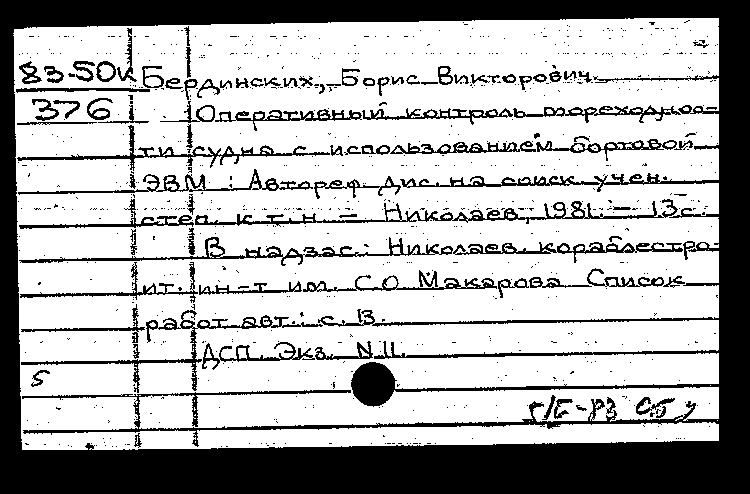 83-50к Бердинских, Борис Викторович.
376 Оперативный контроль мореходнос-
ти судна с использованием бортовой
ЭВМ : Автореф. дис. на соиск. учен.
степ. к.т.н. - Николаев, 1981. - 13с.
В надзаг.: Николаев. кораблестро-
ит. ин-т им. С.О Макарова Список
работ авт.: с. 13.
ДСП. Экз. N 11.
5